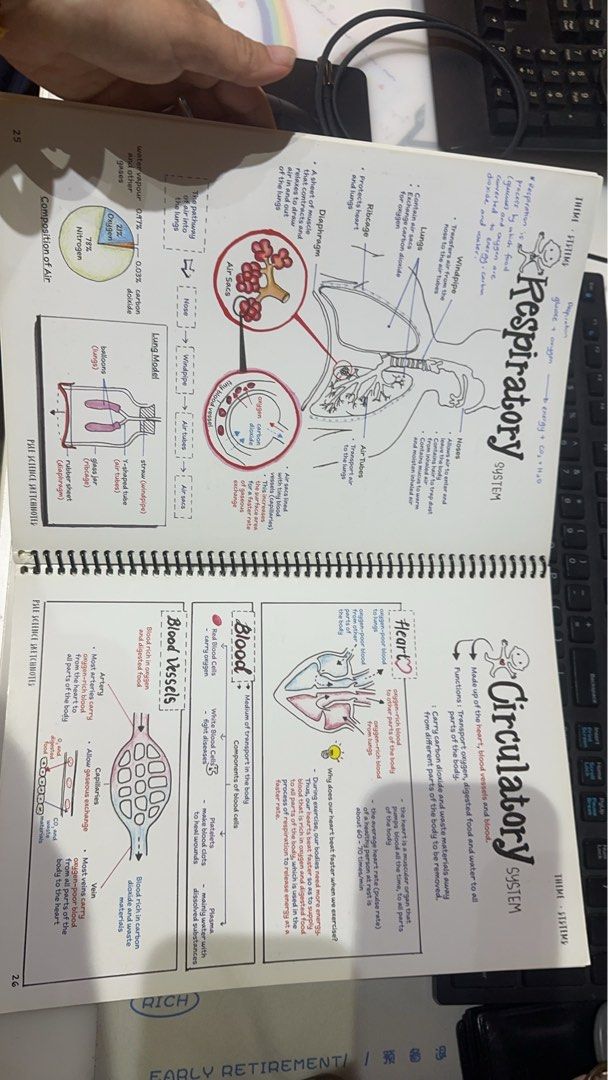 THEME: SYSTEMS
Respiratory
SYSTEM
* Respiration is a
process by which food
(glucose) and oxygen are
converted to energy, carbon
dioxide and water.
Respiration
glucose + oxygen → energy + CO2 + H2O
Windpipe
Transfers air from the
nose to the air tubes
Lungs
• Contain air sacs
• Exchange carbon dioxide
for oxygen
Ribcage
• Protects heart
and lungs
Diaphragm
• A sheet of muscle
that contracts and
relaxes to draw
air in and out
of the lungs
Noses
• Allows air to enter and
leave the body
• Contains hair to trap dust
from inhaled air
• Contains mucus to warm
and moisten inhaled air
Air tubes
• Transport air
to the lungs
Air Sacs
oxygen
carbon
dioxide
tiny blood vessel
• Air sacs lined
with tiny blood
vessels (capillaries)
• This increases
the surface area
for a faster rate
of gaseous
exchange
The pathway
of air into
the lungs
Nose → Windpipe → Air tubes → Air sacs
water vapour
and other
gases
0.97%
0.03% carbon
dioxide
21%
Oxygen
78%
Nitrogen
Composition of Air
Lung Model
straw (windpipe)
Y-shaped tube
(air tubes)
glass jar
(ribcage)
rubber sheet
(diaphragm)
balloons
(lungs)
25
PSLE SCIENCE SKETCHNOTES
THEME: SYSTEMS
Circulatory
SYSTEM
Made up of the heart, blood vessels and blood.
Functions: Transport oxygen, digested food and water to all
parts of the body.
: Carry carbon dioxide and waste materials away
from different parts of the body to be removed.
Heart
oxygen-poor blood
to lungs
oxygen-poor blood
from other
parts of
the body
oxygen-rich blood
to other parts of the body
oxygen-rich blood
from lungs
- the heart is a muscular organ that
pumps blood all the time, to all parts
of the body
- the average heart rate (pulse rate)
of a healthy person at rest is
about 60 - 70 times/min
Why does our heart beat faster when we exercise?
- During exercise, our bodies need more energy.
Thus, our hearts beat faster so as to supply
blood that is rich in oxygen and digested food
to all parts of the body, which is used in the
process of respiration to release energy at a
faster rate.
Blood
Medium of transport in the body
Components of blood cells
Red Blood Cells
- carry oxygen
White Blood Cells
- fight diseases
Platelets
- make blood clots
to heal wounds
Plasma
- mainly water with
dissolved substances
Blood Vessels
Blood rich in oxygen
and digested food
Blood rich in carbon
dioxide and waste
materials
Artery
• Most arteries carry
oxygen-rich blood
from the heart to
all parts of the body
Capillaries
• Allow gaseous exchange
O2 and
digested
food
CO2 and
waste
materials
Vein
• Most veins carry
oxygen-poor blood
from all parts of the
body to the heart
PSLE SCIENCE SKETCHNOTES
26
RICH
EARLY RETIREMENT/
Backspace
Insert
Home